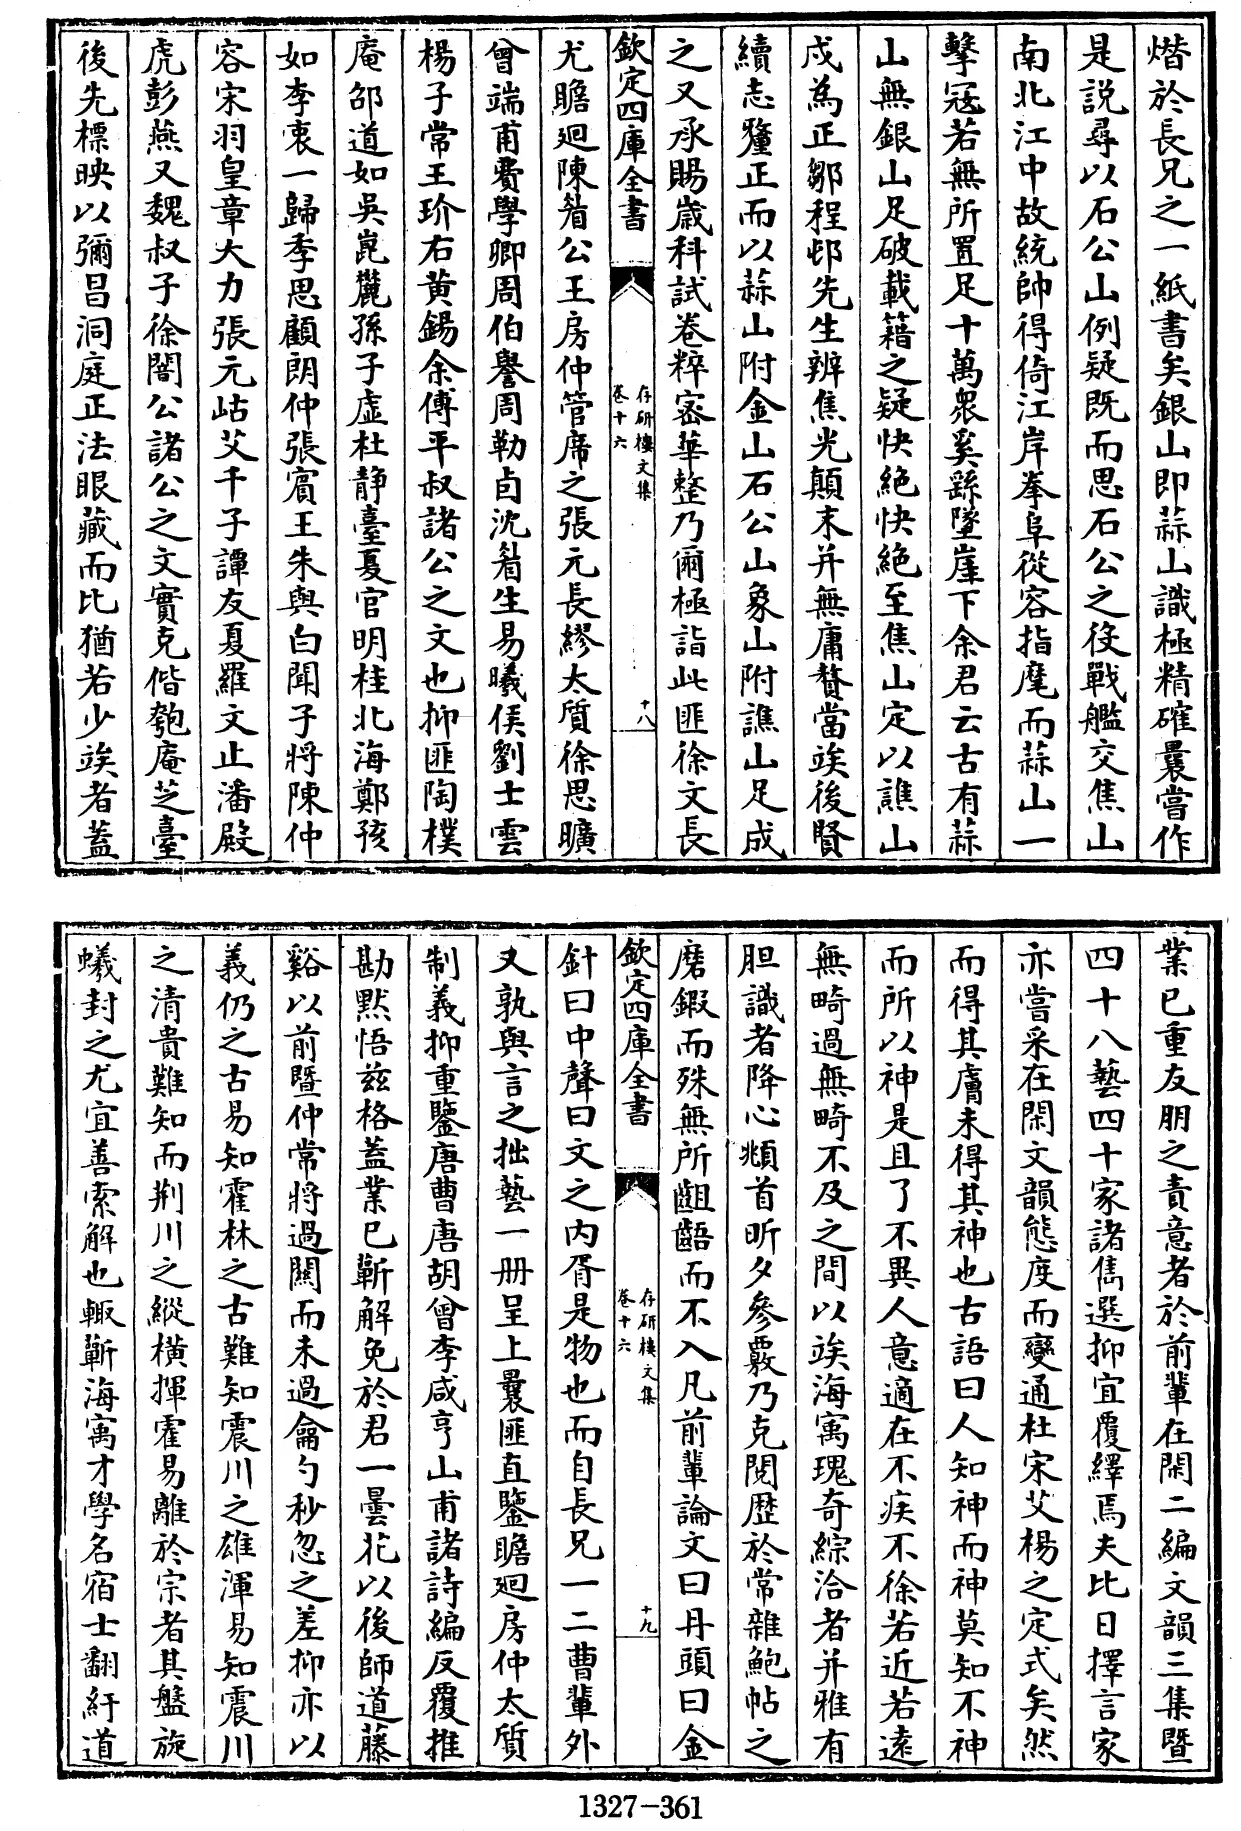 熸於長兄之一紙書矣銀山即蒜山識極精確曩嘗作
是説尋以石公山例疑既而思石公之役戰艦交焦山
南北江中故統帥得倚江岸拳阜從容指麾而蒜山一
擊寇若無所置足十萬衆奚繇墜崖下余君云古有蒜
山無銀山足破載籍之疑快絶快絶至焦山定以譙山
戍為正鄒程邨先生辨焦光顛末并無庸贅當竢後賢
續志釐正而以蒜山附金山石公山象山附譙山足成
之又承賜歳科試卷粹宻華整乃爾極詣此匪徐文長
欽定四庫全書
存研樓文集
卷十六
十八
尤瞻廻陳眷公王房仲管席之張元長繆太質徐思曠
曾端甫費學卿周伯譽周勒卣沈眷生易曦侯劉士雲
楊子常王玠右黄錫余傅平叔諸公之文也抑匪陶樸
庵邵道如吳崑麓孫子虛杜静臺夏官明桂北海鄭孩
如李衷一歸季思顧朗仲張賔王朱輿白聞子將陳仲
容宋羽皇章大力張元岵艾千子譚友夏羅文止潘殿
虎彭燕又魏叔子徐闇公諸公之文實克偕匏庵芝臺
後先標映以彌昌洞庭正法眼藏而比猶若少竢者蓋
業已重友朋之責意者於前輩在閑二編文韻三集暨
四十八藝四十家諸儁選抑宜覆繹焉夫比日擇言家
亦嘗采在閑文韻態度而變通杜宋艾楊之定式矣然
而得其膚未得其神也古語曰人知神而神莫知不神
而所以神是且了不異人意適在不疾不徐若近若遠
無畸過無畸不及之間以竢海寓瑰奇綜洽者并雅有
胆識者降心頫首昕夕參覈乃克閱歴於常雜鮑帖之
磨鍜而殊無所齟齬而不入凡前輩論文曰丹頭曰金
欽定四庫全書
存研樓文集
卷十六
十九
針曰中聲曰文之内胥是物也而自長兄一二曹輩外
又孰與言之拙藝一册呈上曩匪直鑒瞻廻房仲太質
制義抑重鑒唐曹唐胡曾李咸亨山甫諸詩編反覆推
勘黙悟兹格蓋業已蘄解免於君一曇花以後師道藤
谿以前暨仲常將過關而未過龠勺秒忽之差抑亦以
義仍之古易知霍林之古難知震川之雄渾易知震川
之清貴難知而荆川之縱横揮霍易離於宗者其盤旋
蟻封之尤宜善索解也輙蘄海寓才學名宿士翻紆道
1327-361